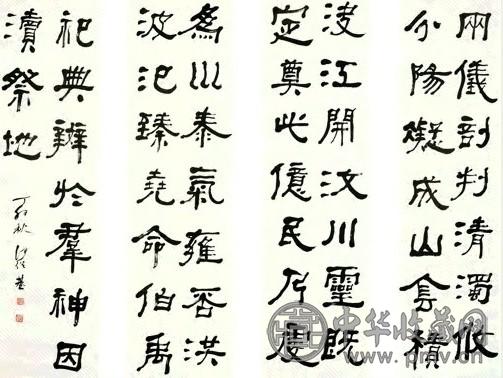 兩儀剖判清濁攸
分陽凝成山侌積
浚江開汶川靈既
定奠此億民
為川泰氣雍否洪
波汜臻堯命伯禹
祀典辨於羣神因
瀆祭地
中华收藏网